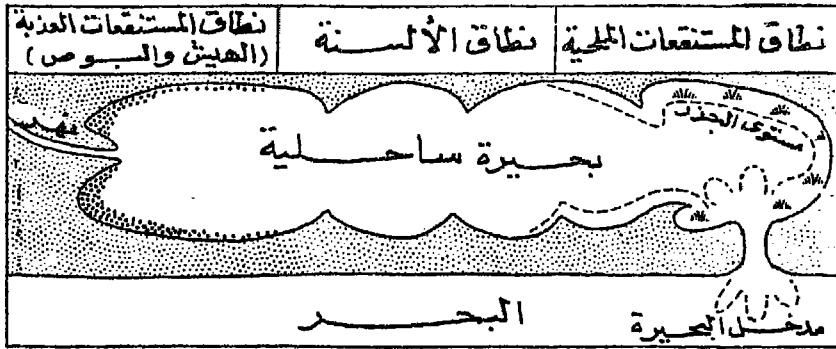 نطاق المستنقعات الملحية
نطاق الألسنة
نطاق المستنقعات العذبة
(الهيش والبوص)
نهر
مستوى الجذر
بحيرة ساحلية
البحر
مدخل البحيرة